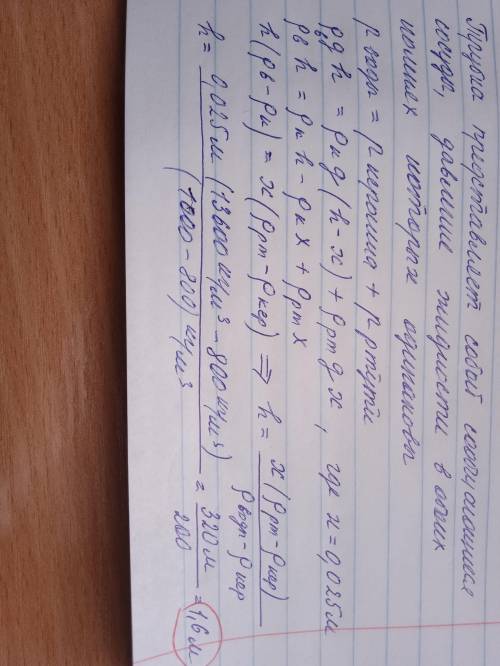 Трубка представляет собой сообщающиеся
сосуды, давление жидкости в обоих
коленах которых одинаковы
p воды = p керосина + p ртути
ρв g h = ρк g (h - x) + ρрт g x , где x = 0,025 м
ρв h = ρк h - ρк x + ρрт x
h (ρв - ρк) = x (ρрт - ρкер) ⇒ h = x (ρрт - ρкер) / ρводы - ρкер
h = 0,025 м (13600 кг/м³ - 800 кг/м³) / (1000 - 800) кг/м³ = 320 м / 200 = 1,6 м